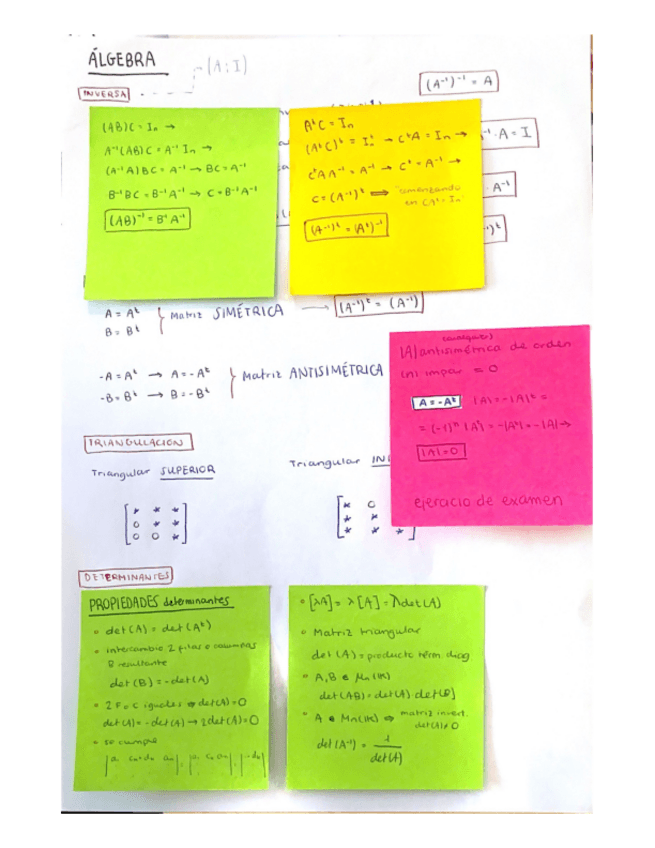 ÁLGEBRA
(A:I)
INVERSA
(A⁻¹)⁻¹ = A
(AB)C = In →
A⁻¹(AB)C = A⁻¹ In →
(A⁻¹A)BC = A⁻¹ → BC = A⁻¹
B⁻¹BC = B⁻¹A⁻¹ → C = B⁻¹A⁻¹
(AB)⁻¹ = B⁻¹A⁻¹
AᵗC = In
(AᵗC)ᵗ = Inᵗ → CᵗA = In →
CᵗAA⁻¹ = A⁻¹ → Cᵗ = A⁻¹ →
C = (A⁻¹)ᵗ ⟹ comenzando
en CAᵗ = In
(A⁻¹)ᵗ = (Aᵗ)⁻¹
· A = I
· A⁻¹
⁻¹)ᵗ
A = Aᵗ
B = Bᵗ
} Matriz SIMÉTRICA → (A⁻¹)ᵗ = (A⁻¹)
-A = Aᵗ → A = -Aᵗ
-B = Bᵗ → B = -Bᵗ
} Matriz ANTISIMÉTRICA
(cualquier)
|A| antisimétrica de orden
(n) impar = 0
A = -Aᵗ |A| = |-A|ᵗ =
= (-1)ⁿ |Aᵗ| = -|Aᵗ| = -|A| →
|A| = 0
ejercicio de examen
TRIANGULACION
Triangular SUPERIOR
* * *
0 * *
0 0 *
Triangular IN
* 0
* *
* * *
DETERMINANTES
PROPIEDADES determinantes
• det(A) = det(Aᵗ)
• intercambio 2 filas o columnas
B resultante
det(B) = -det(A)
• 2 F o C iguales ⇒ det(A) = 0
det(A) = -det(A) → 2det(A) = 0
• se cumple
• [λA] = λ[A] = λdet(A)
• Matriz triangular
det(A) = producto térm. diag
• A, B ∈ Mn(IK)
det(AB) = det(A) det(B)
• A ∈ Mn(IK) ⇔ matriz invert.
det(A) ≠ 0
det(A⁻¹) = 1/det(A)